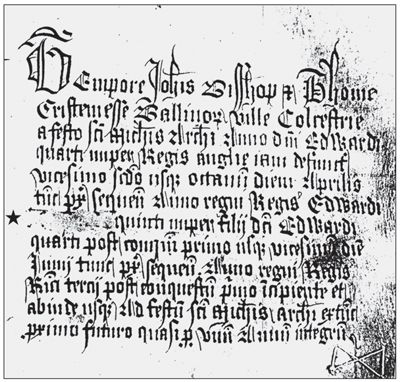 Tempore Johis Bisshop & Thome
Cristemesse Ballivor ville Colcestrie
a festo sci Michis Archi Anno dni Edwardi
quarti nuper Regis anglie iam defunct
vicesimo scdo usq octavu diem Aprilis
tuc px sequen Anno regni Regis Edwardi
quinti nuper filij dni Edwardi
quarti post conqm primo usq vicesimu die
Junij tunc px sequen Anno regni Regis
Rici tercij post conquestu pimo incipiente et
abinde usq Ad festu sci Michis archi extuc
primo futuro quasi p unu Annu integru